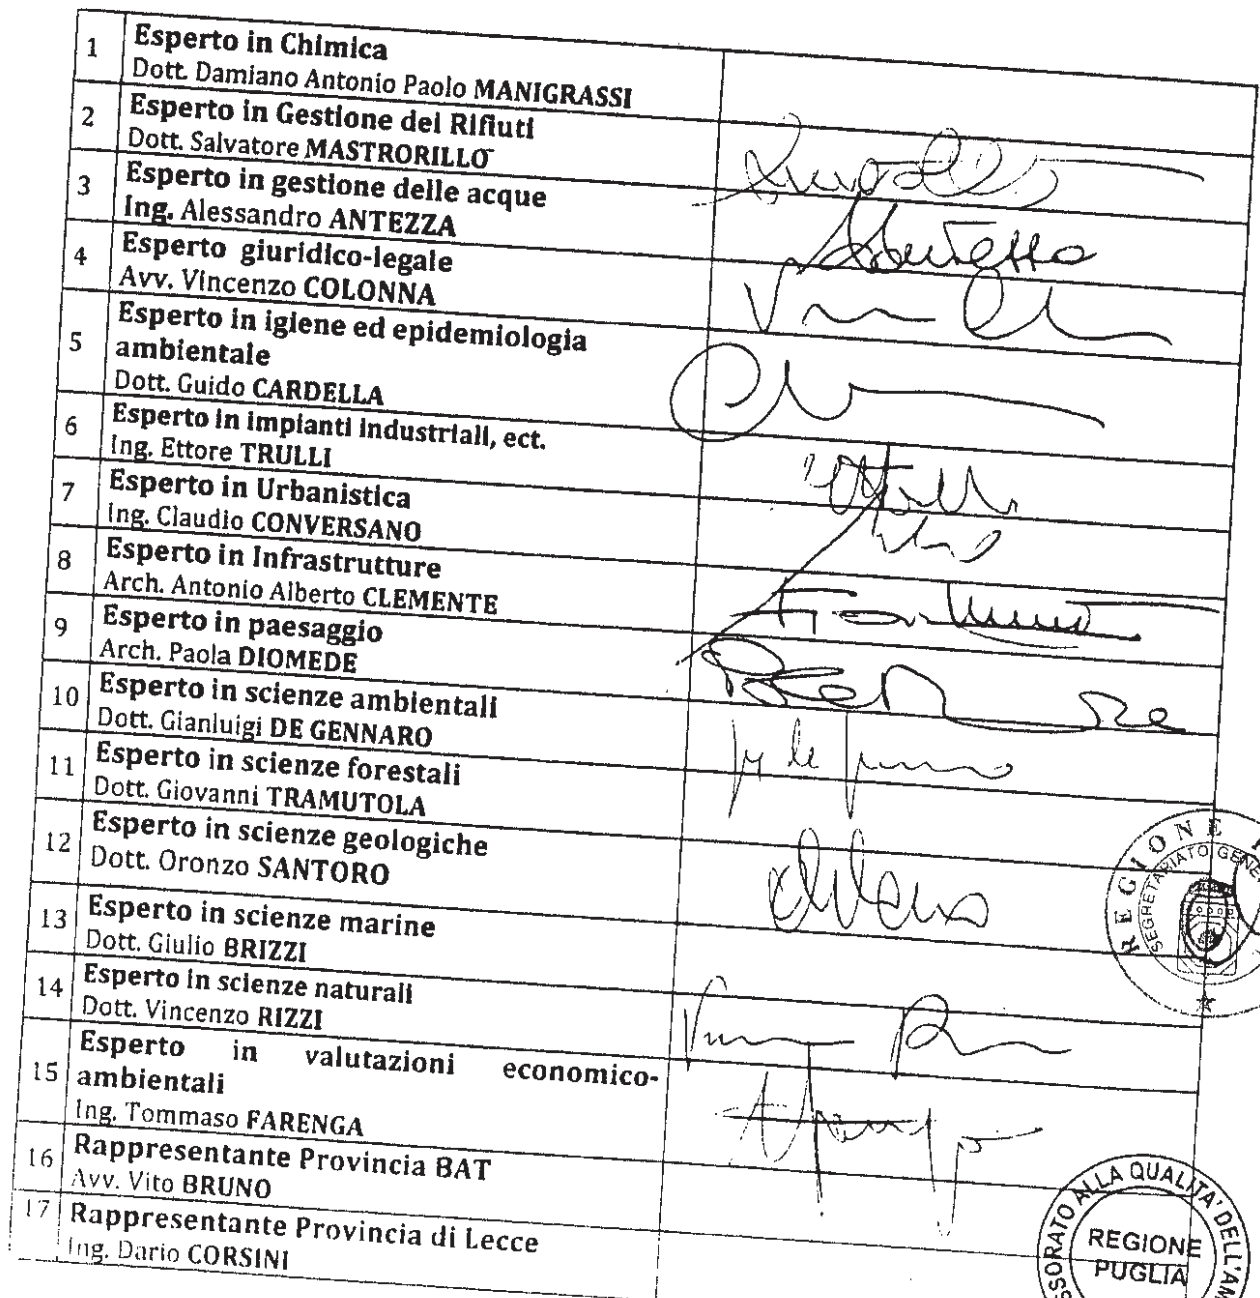 1
Esperto in Chimica
Dott. Damiano Antonio Paolo MANIGRASSI
2
Esperto in Gestione dei Rifiuti
Dott. Salvatore MASTRORILLO
3
Esperto in gestione delle acque
Ing. Alessandro ANTEZZA
4
Esperto giuridico-legale
Avv. Vincenzo COLONNA
5
Esperto in igiene ed epidemiologia
ambientale
Dott. Guido CARDELLA
6
Esperto in impianti industriali, ect.
Ing. Ettore TRULLI
7
Esperto in Urbanistica
Ing. Claudio CONVERSANO
8
Esperto in Infrastrutture
Arch. Antonio Alberto CLEMENTE
9
Esperto in paesaggio
Arch. Paola DIOMEDE
10
Esperto in scienze ambientali
Dott. Gianluigi DE GENNARO
11
Esperto in scienze forestali
Dott. Giovanni TRAMUTOLA
12
Esperto in scienze geologiche
Dott. Oronzo SANTORO
13
Esperto in scienze marine
Dott. Giulio BRIZZI
14
Esperto in scienze naturali
Dott. Vincenzo RIZZI
15
Esperto in valutazioni economico-
ambientali
Ing. Tommaso FARENGA
16
Rappresentante Provincia BAT
Avv. Vito BRUNO
17
Rappresentante Provincia di Lecce
Ing. Dario CORSINI
REGIONE
SEGRETARIATO GENE
SSORATO ALLA QUALITA' DELL'AM
REGIONE
PUGLIA